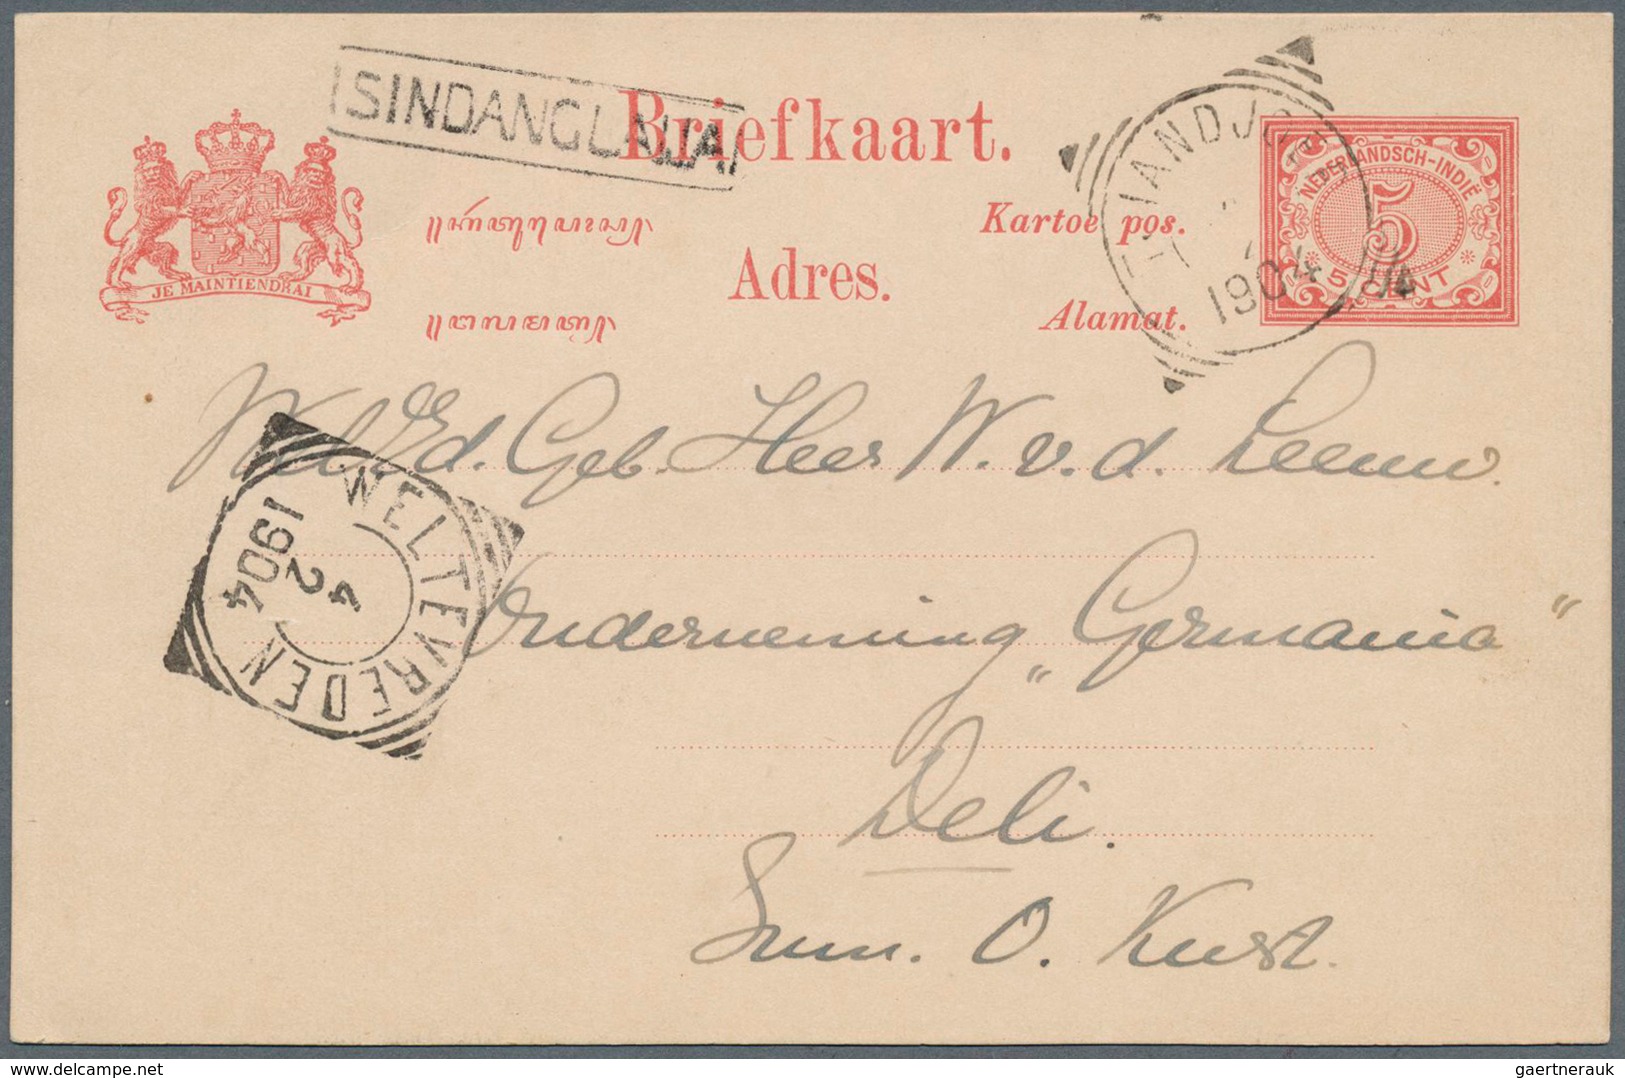 SINDANGLAIJA
Briefkaart.
Kartoe pos.
Adres.
Alamat.
JE MAINTIENDRAI
TJIANDJOER
1904
NEDERLANDSCH-INDIË
5
5 CENT
Wel Ed. Geb. Heer W. v. d. Leeuw.
Onderneming „Germania"
Deli.
Sum. O. Kust.
WELTEVREDEN
4
2
1904
delcampe.net
gaertnerauk